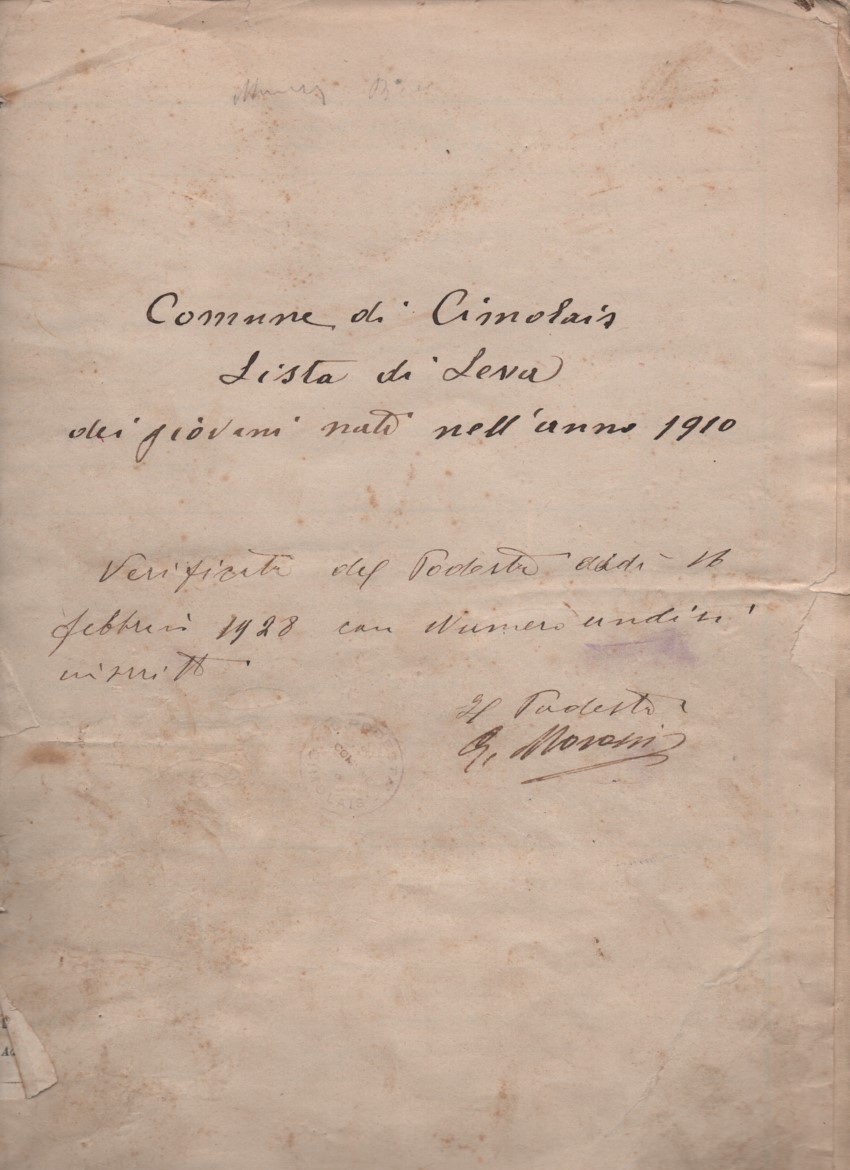 Comune di Cimolais
Lista di Leva
dei giovani nati nell'anno 1910
Verificata dal Podestà addì 16
febbraio 1928 con Numero undici
iscritti
Il Podestà
G. Morossi
CIMOLAIS